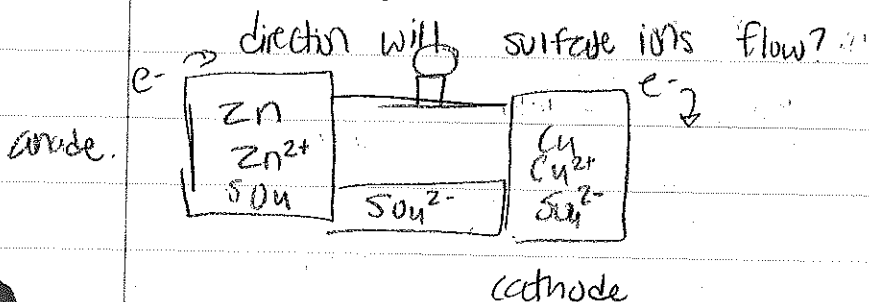 direction will sulfate ions flow?
e-
e-
anode.
Zn
Zn2+
SO4
SO4 2-
Cu
Cu2+
SO4 2-
cathode